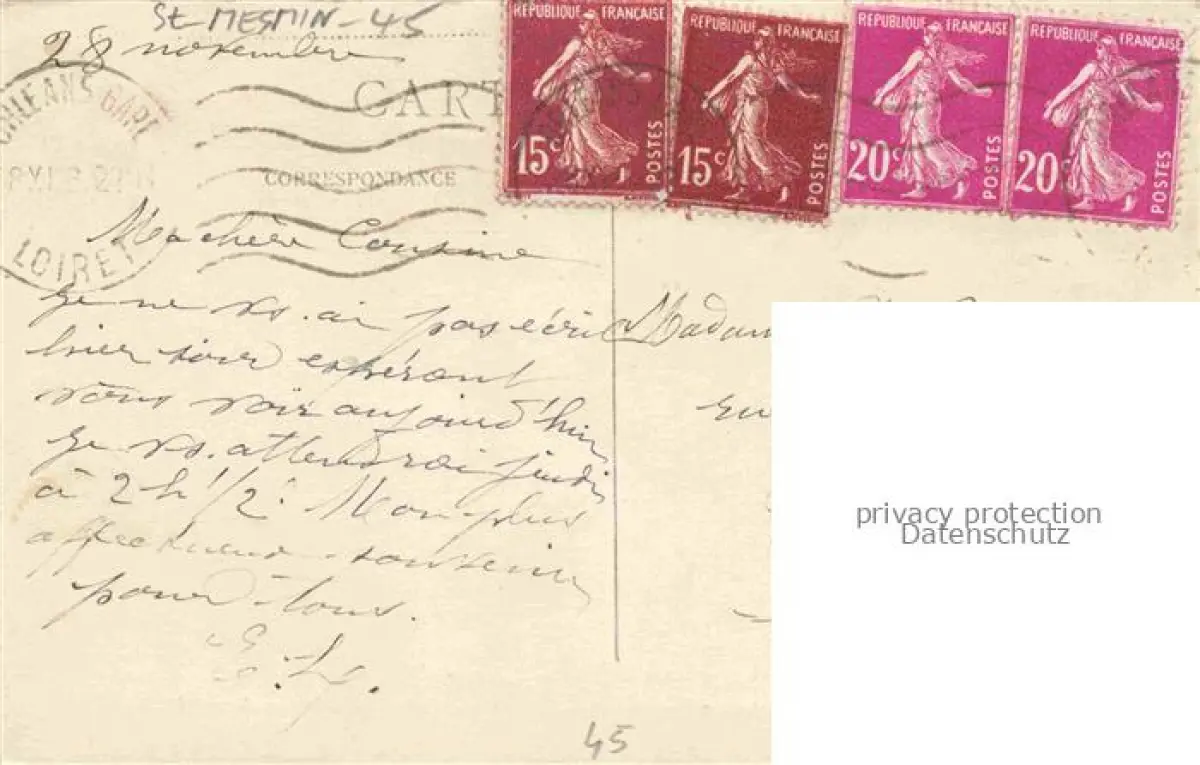 St MESMIN - 45
28 novembre
ORLEANS GARE
LOIRET
CART
CORRESPONDANCE
REPUBLIQUE FRANÇAISE
15c
POSTES
REPUBLIQUE FRANÇAISE
15c
POSTES
REPUBLIQUE FRANÇAISE
20c
POSTES
REPUBLIQUE FRANÇAISE
20c
POSTES
Ma chère Cousine
Je ne vs. ai pas écrit
hier soir espérant
vous voir aujourd'hui
Je vs. attendrai jeudi
à 2h 1/2. Mon plus
affectueux souvenir
pour tous.
Madam
privacy protection
Datenschutz
45